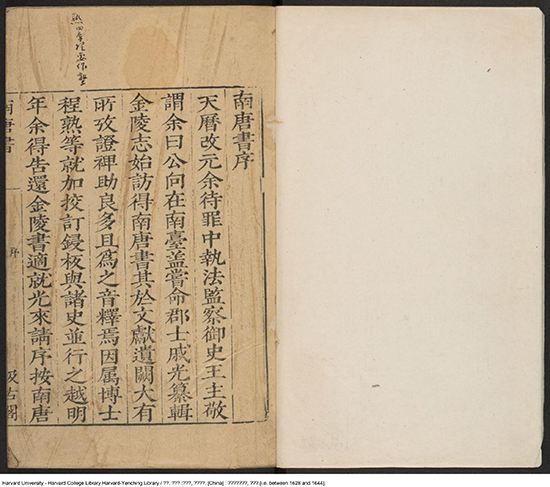 南唐書序
天曆改元余待罪中執法監察御史王主敬
謂余曰公向在南臺盖嘗命郡士戚光纂輯
金陵志始訪得南唐書其於文獻遺闕大有
所攷證裨助良多且爲之音釋焉因属博士
程熟等就加挍訂鋟板與諸史並行之越明
年余得告還金陵書適就光來請序按南唐
南唐書
序
汲古閣
Harvard University - Harvard College Library Harvard-Yenching Library / ??. ??? :???, ????. [China] : ???????, ??? [i.e. between 1628 and 1644].